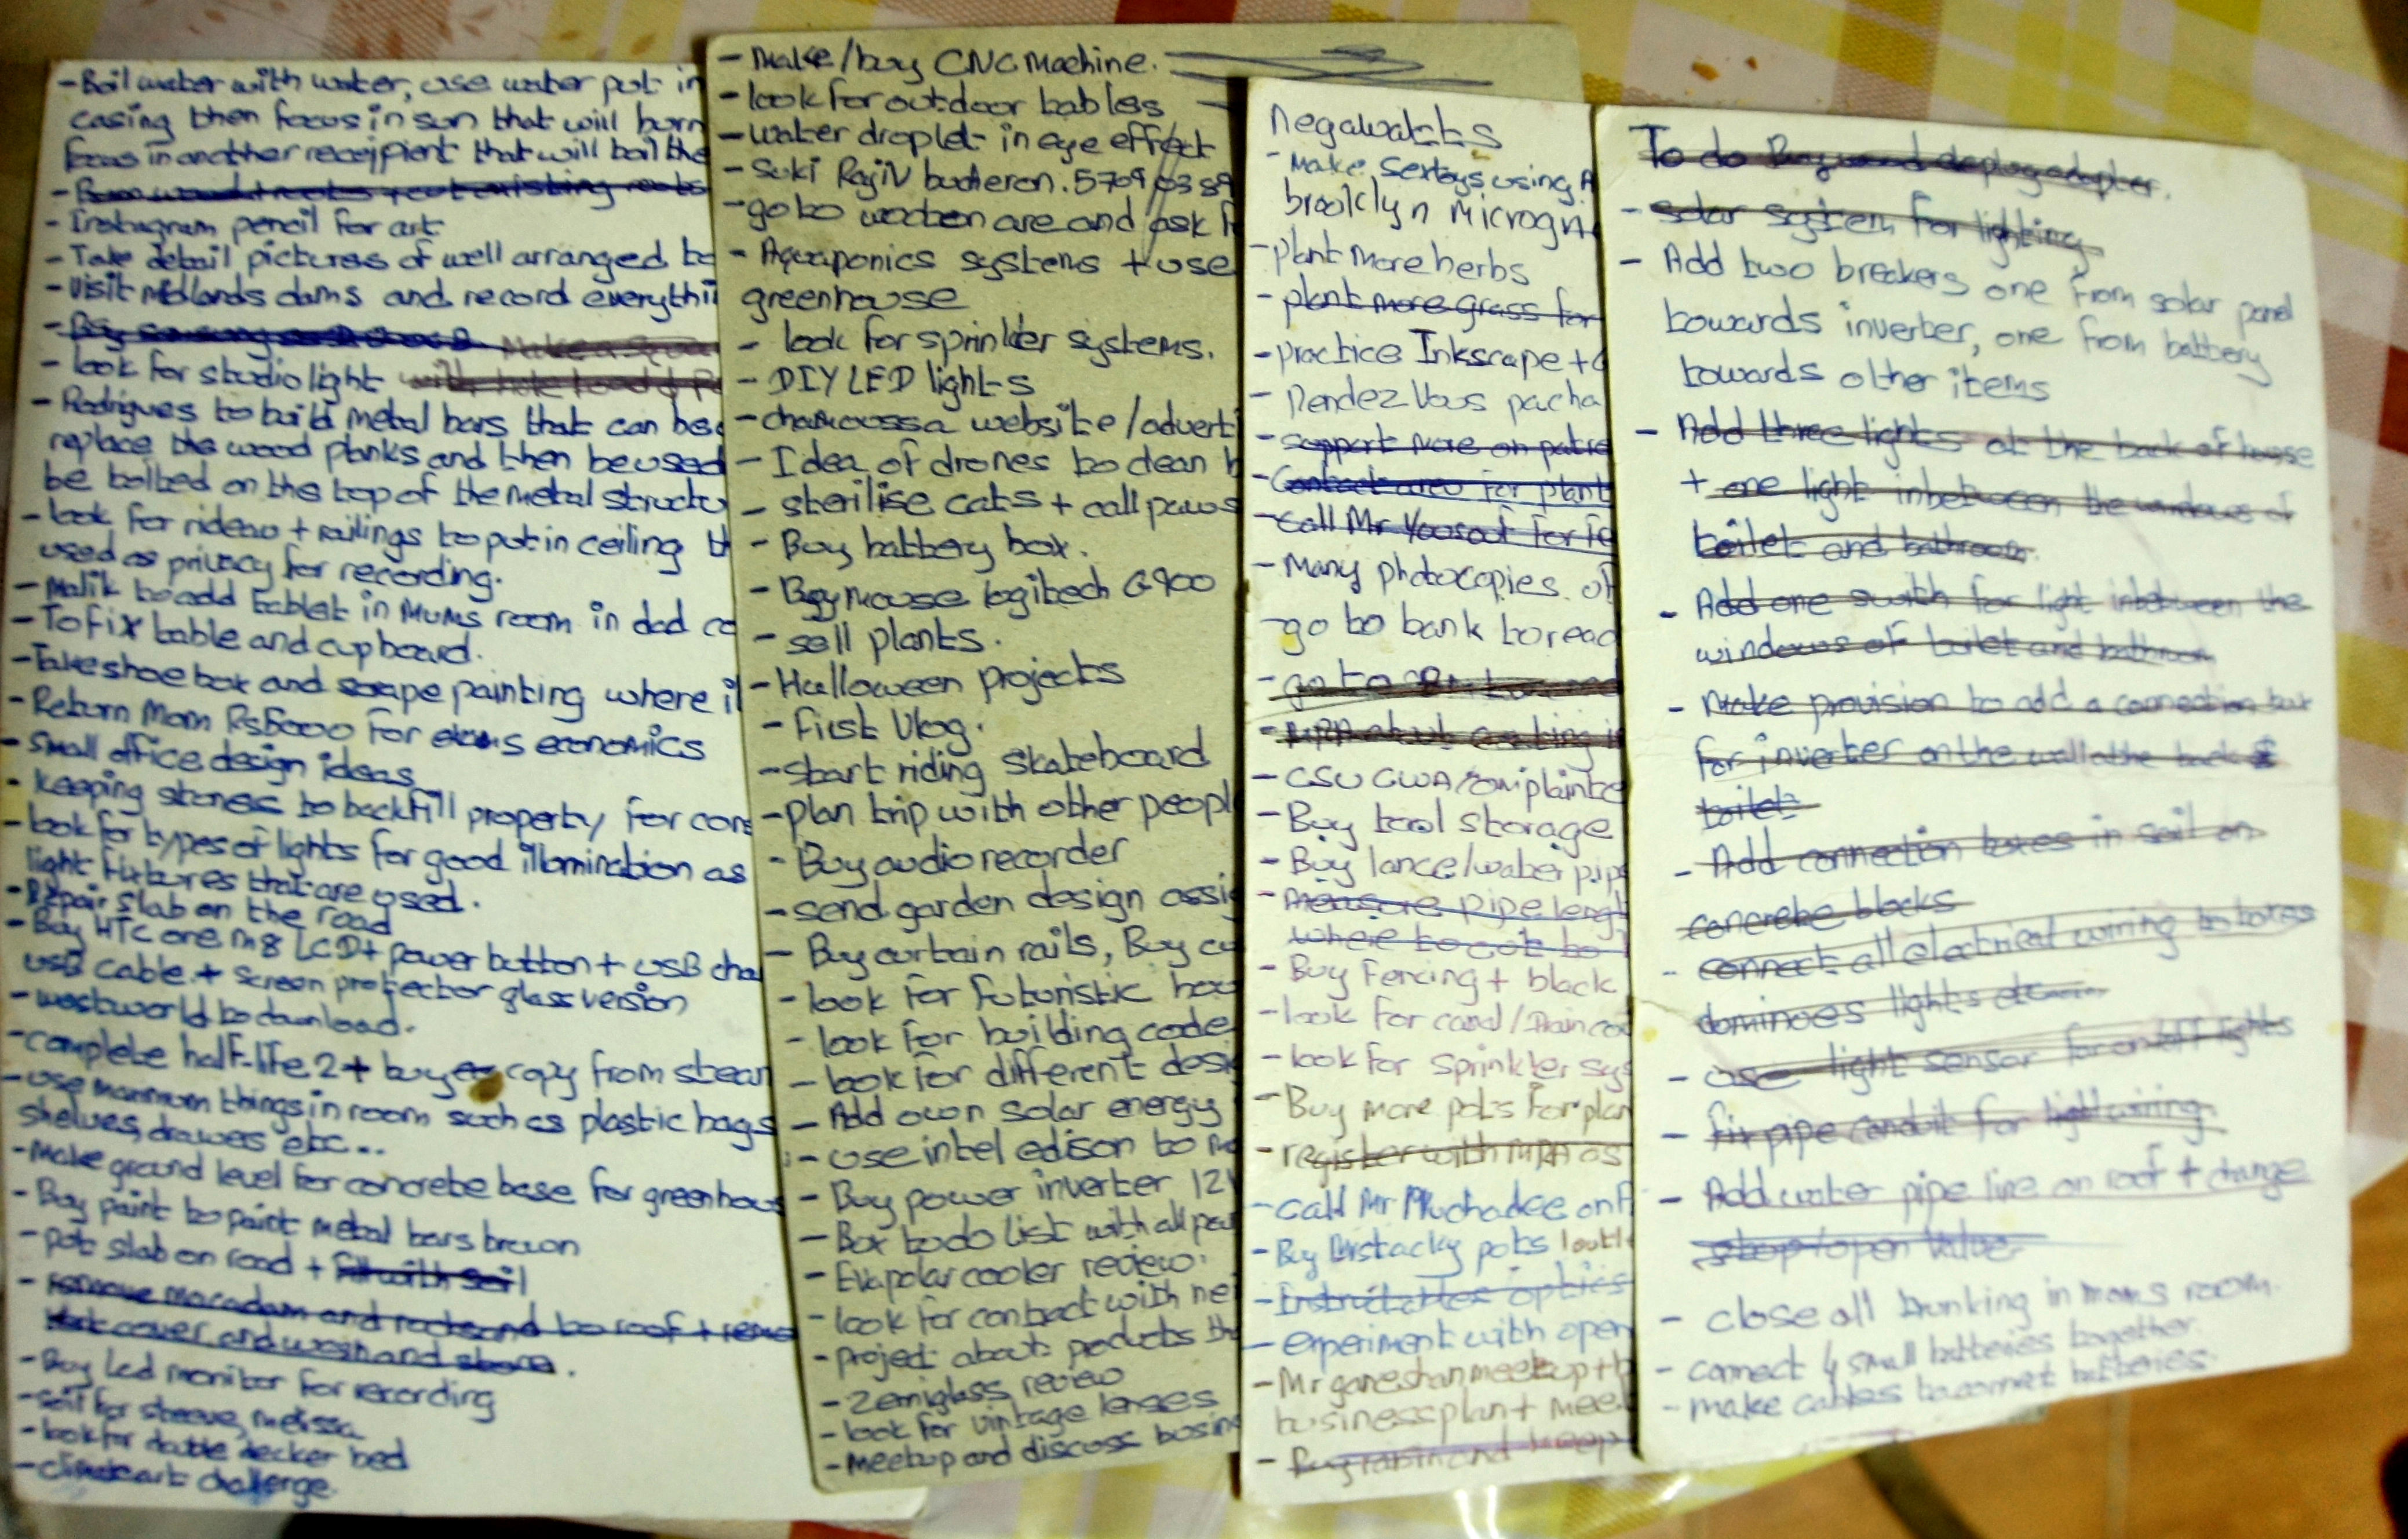 - Boil water with water, use water put in
casing then focus in sun that will burn
focus in another recipient that will boil the
- Instagram pencil for art
- Take detail pictures of well arranged
- Visit midlands dams and record everythi
- look for studio light
- Rodrigues to build metal bars that can be
replace the wood planks and then be used
be bolted on the top of the metal structu
- look for rideau + railings to put in ceiling th
used as privacy for recording.
- Malik to add tablet in Mums room in dad
- To fix table and cupboard.
- Take shoe box and scrape painting where i
- Return Mom Rs6000 for exams economics
- Small office design ideas
- keeping stones to backfill property for cons
- look for types of lights for good illumination as
light fixtures that are used.
- Repair slab on the road
- Buy HTC one m8 LCD + power button + USB cha
usb cable + screen protector glass version
- westworld to download.
- complete half-life 2 + buy copy from stea
- use manmum things in room such as plastic bags
shelves, drawers etc...
- Make ground level for concrete base for greenhou
- Buy paint to paint metal bars brown
- put slab on road + fill with soil
- remove macadam and rocksand to roof + remo
cover and wash and store.
- Buy lcd monitor for recording
- soil for steeve, melissa
- look for double decker bed
- climate art challenge.
- Make/buy CNC Machine.
- look for outdoor tables
- water droplet in eye effect
- Suki Rajiv 5709
- go to are and ask f
- Aquaponics systems + use
greenhouse
- look for sprinkler systems.
- DIY LED lights
- chamoussa website/advert
- Idea of drones to clean
- sterilise cats + call paws
- Buy battery box.
- Buy mouse logitech G900
- sell plants.
- Halloween projects
- First Vlog.
- start riding skateboard
- plan trip with other peopl
- Buy audio recorder
- send garden design assig
- Buy curtain rails, Buy cu
- look for futuristic hou
- look for building code
- look for different desi
- Add own solar energy
- use intel edison to
- Buy power inverter 12V
- Box to do list with all
- Evapolar cooler review.
- look for contract with nei
- project about products th
- Zemiglass review
- look for vintage lenses
- Meetup and discuss busin
Negawatts
- Make using
brooklyn microgr
- plant more herbs
- plant more grass for
- practice Inkscape +
- Rendez Vous pacha
- support more on patre
- Contact for plant
- call Mr for
- Many photocopies of
- go to bank to read
- go to
- MRA about
- CSU CWA complaint
- Buy tool storage
- Buy lance/water pipe
- Measure pipe lengt
where to cut to
- Buy Fencing + black
- look for
- look for sprinkler sys
- Buy more pots for plan
- register with MRA as
- call Mr on
- Buy stacky pots
- optics
- experiment with open
- Mr ganeshan meetup +
business plan + mee
- Buy and keep
To do Buy and
- solar system for lighting
- Add two breakers one from solar panel
towards inverter, one from battery
towards other items
- Add three lights at the back of house
+ one light inbetween the windows of
toilet and bathroom.
- Add one swith for light inbetween the
windows of toilet and bathroom
- Make provision to add a connection box
for inverter on the wall at the back of
toilet
- Add connection boxes in soil on
concrete blocks
- connect all electrical wiring to boxes
dominoes lights etc
- use light sensor for on/off lights
- fix pipe conduit for light wiring.
- Add water pipe line on roof + change
stop/open valve
- close all trunking in moms room.
- connect 4 small batteries together.
- make cables to connect batteries.